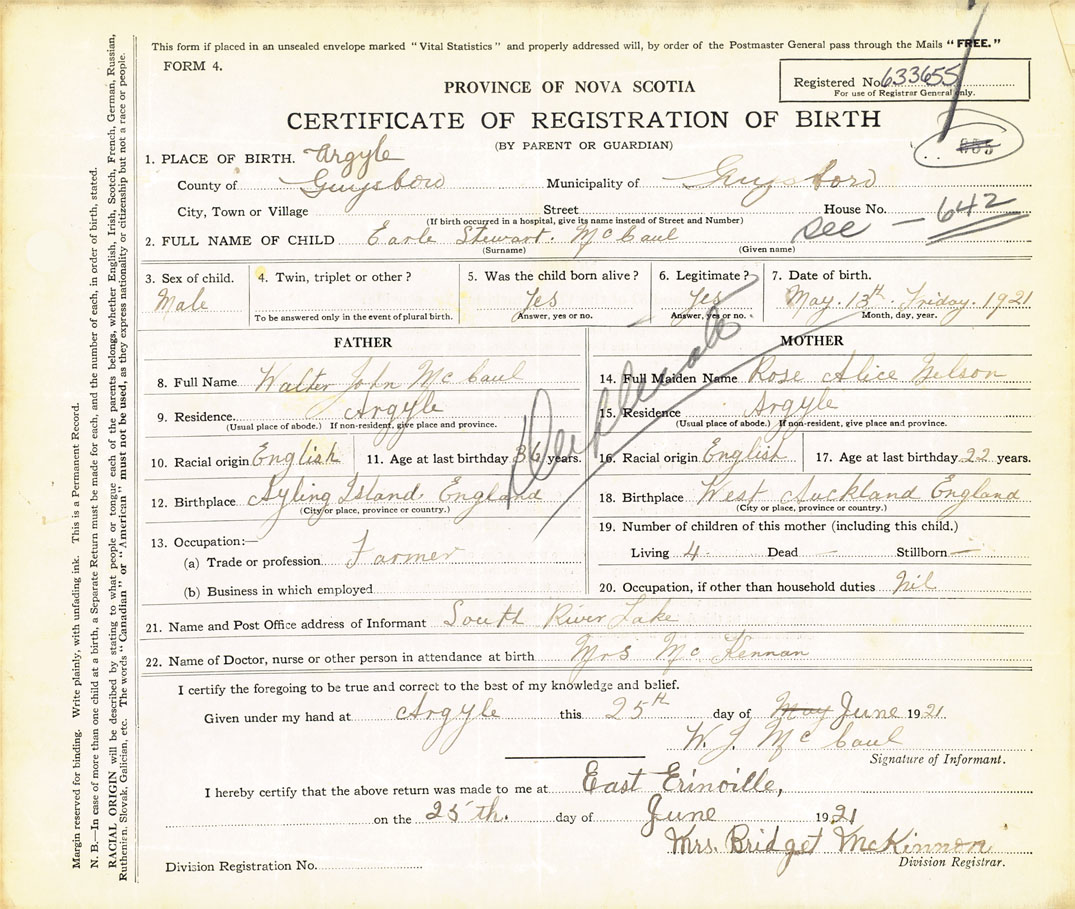 This form if placed in an unsealed envelope marked "Vital Statistics" and properly addressed will, by order of the Postmaster General pass through the Mails "FREE."
FORM 4.
Registered No. 633655
For use of Registrar General only.
PROVINCE OF NOVA SCOTIA
CERTIFICATE OF REGISTRATION OF BIRTH
(BY PARENT OR GUARDIAN)
655
1. PLACE OF BIRTH. Argyle
County of Guysboro Municipality of Guysboro
City, Town or Village Street House No.
(If birth occurred in a hospital, give its name instead of Street and Number)
See — 642
2. FULL NAME OF CHILD Earle Stewart. McCaul
(Surname) (Given name)
3. Sex of child. 4. Twin, triplet or other? 5. Was the child born alive? 6. Legitimate? 7. Date of birth.
Male Yes Yes May. 13th. Friday. 1921
To be answered only in the event of plural birth. Answer, yes or no. Answer, yes or no. Month, day, year.
Duplicate
FATHER MOTHER
8. Full Name Walter John McCaul 14. Full Maiden Name Rose Alice
9. Residence. Argyle 15. Residence Argyle
(Usual place of abode.) If non-resident, give place and province. (Usual place of abode.) If non-resident, give place and province.
10. Racial origin English 11. Age at last birthday 36 years. 16. Racial origin English 17. Age at last birthday 22 years.
12. Birthplace Island. England 18. Birthplace West Auckland England
(City or place, province or country.) (City or place, province or country.)
13. Occupation:— 19. Number of children of this mother (including this child.)
(a) Trade or profession Farmer Living 4 Dead — Stillborn —
(b) Business in which employed 20. Occupation, if other than household duties Nil
21. Name and Post Office address of Informant South River Lake
22. Name of Doctor, nurse or other person in attendance at birth Mrs McKennan
I certify the foregoing to be true and correct to the best of my knowledge and belief.
Given under my hand at Argyle this 25th day of May June 1921
W. J. McCaul
Signature of Informant.
I hereby certify that the above return was made to me at East Erinville,
on the 25th. day of June 1921
Mrs. Bridget McKinnon
Division Registration No. Division Registrar.
Margin reserved for binding. Write plainly, with unfading ink. This is a Permanent Record.
N. B.—In case of more than one child at a birth, a Separate Return must be made for each, and the number of each, in order of birth, stated.
RACIAL ORIGIN will be described by stating to what people or tongue each of the parents belongs, whether English, Irish, Scotch, French, German, Russian,
Ruthenian, Slovak, Galician, etc. The words "Canadian" or "American" must not be used, as they express nationality or citizenship but not a race or people.